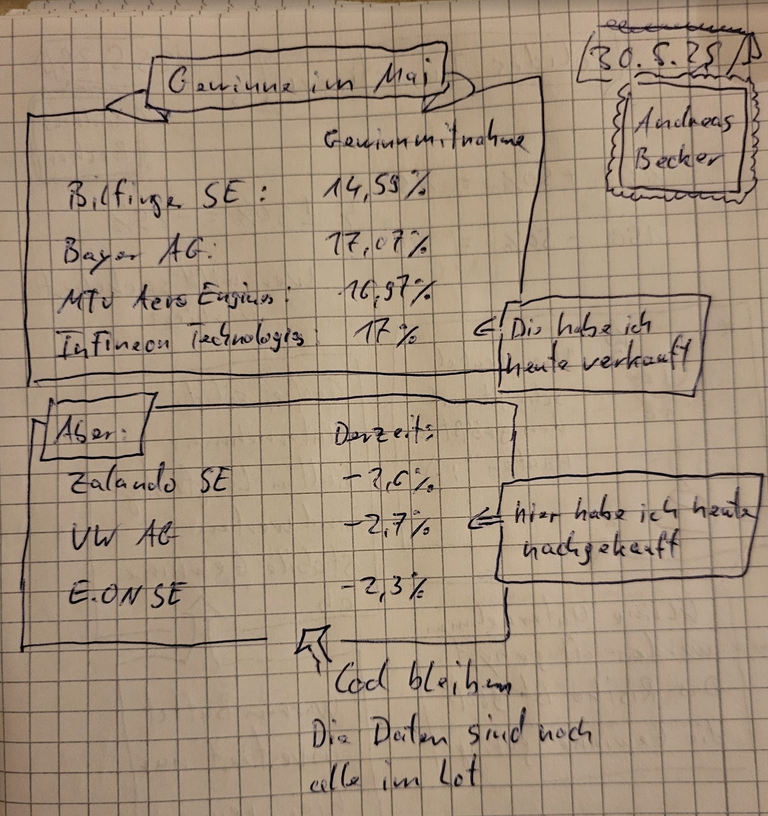 30.5.25
Andreas
Becker
Gewinne im Mai
Gewinnmitnahme
Bilfinger SE: 14,59%
Bayer AG: 17,07%
MTU Aero Engines: 16,97%
Infineon Technologies: 17%
Die habe ich
heute verkauft
Aber: Derzeit:
Zalando SE -2,6%
VW AG -2,7%
E.ON SE -2,3%
hier habe ich heute
nachgekauft
Cool bleiben
Die Daten sind noch
alle im Lot